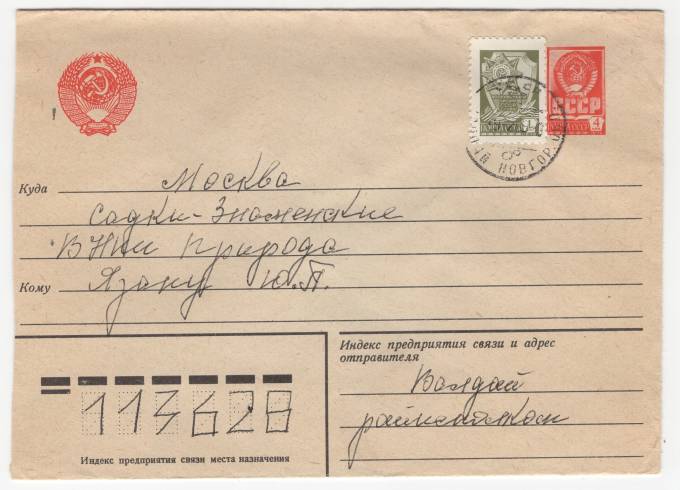 СССР
4
1
НОВГОР.
Куда Москва
Садки-Знаменские
ВНИИ Природа
Кому Язану Ю.П.
Индекс предприятия связи и адрес
отправителя
Валдай
113628
Индекс предприятия связи места назначения